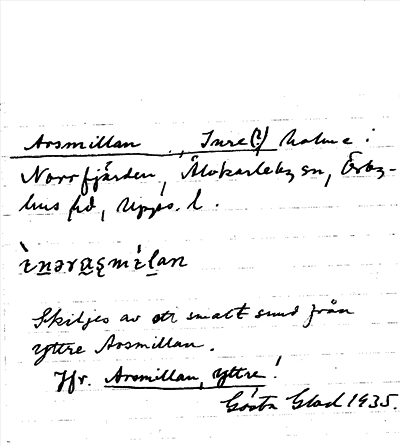 Arsmillan, Inre(?) holme i
Norrfjärden, Älvkarleby sn, Örby-
hus hd, Upps. l.
ìnərasmìlan
Skiljes av ett smalt sund från
Yttre Arsmillan.
Jfr. Arsmillan, Yttre!
Gösta Glad 1935.